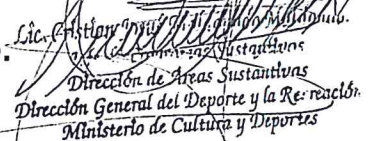 Lic. Cristian
Sustantivas
Dirección de Areas Sustantivas
Dirección General del Deporte y la Recreación
Ministerio de Cultura y Deportes